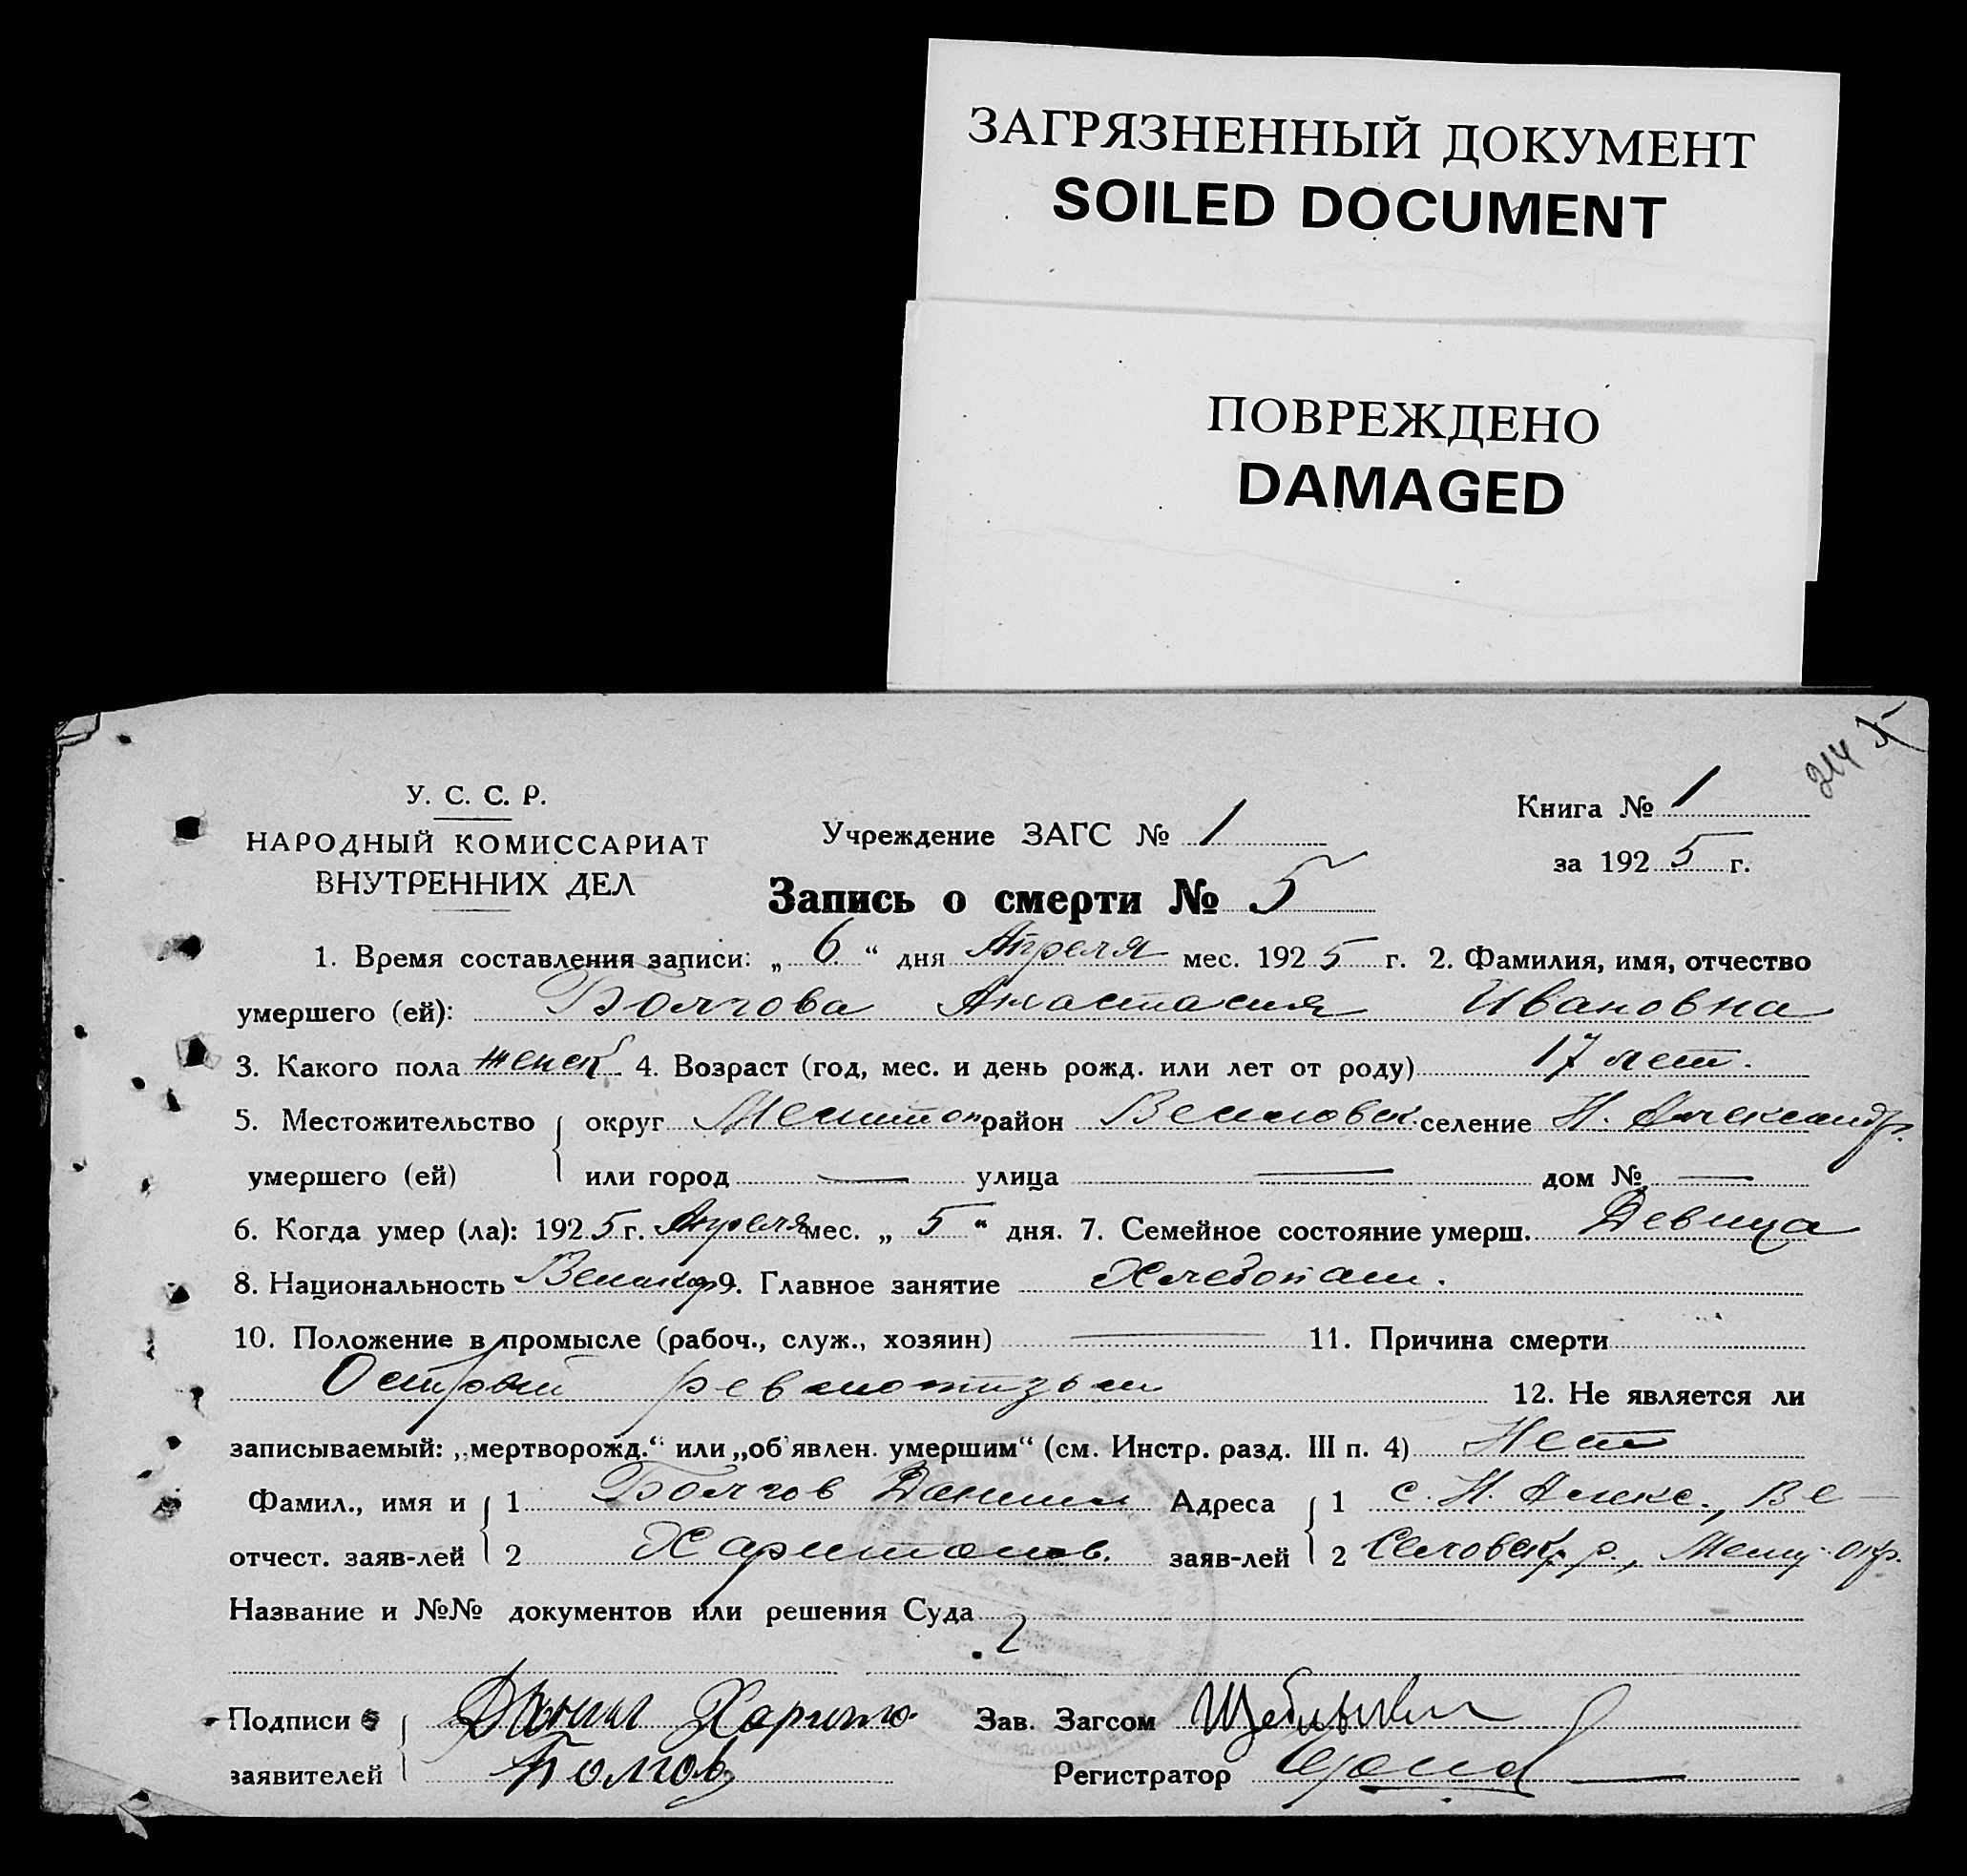 ЗАГРЯЗНЕННЫЙ ДОКУМЕНТ
SOILED DOCUMENT
ПОВРЕЖДЕНО
DAMAGED
У. С. С. Р.
НАРОДНЫЙ КОМИССАРИАТ
ВНУТРЕННИХ ДЕЛ
Учреждение ЗАГС № 1
Книга № 1
за 1925 г.
Запись о смерти № 5
1. Время составления записи: „ 6 “ дня Апреля мес. 1925 г. 2. Фамилия, имя, отчество
умершего (ей): Болгова Анастасия Ивановна
3. Какого пола женск 4. Возраст (год, мес. и день рожд. или лет от роду) 17 лет.
5. Местожительство округ Мелитоп район Веселовск. селение Н. Александр.
умершего (ей) или город — улица — дом № —
6. Когда умер (ла): 1925 г. Апреля мес. „ 5 “ дня. 7. Семейное состояние умерш. Девица
8. Национальность Великор 9. Главное занятие Хлебопаш.
10. Положение в промысле (рабоч., служ., хозяин) — 11. Причина смерти
Острый ревмотизьм 12. Не является ли
записываемый: „мертворожд.“ или „об'явлен. умершим“ (см. Инстр. разд. III п. 4) Нет
Фамил., имя и 1 Болгов Даниил Адреса 1 с. Н. Алекс., Ве-
отчест. заяв-лей 2 Харитонов. заяв-лей 2 селовск. р., Мелит. окр.
Название и №№ документов или решения Суда
2
Подписи Даниил Харито Зав. Загсом
заявителей Болгов Регистратор